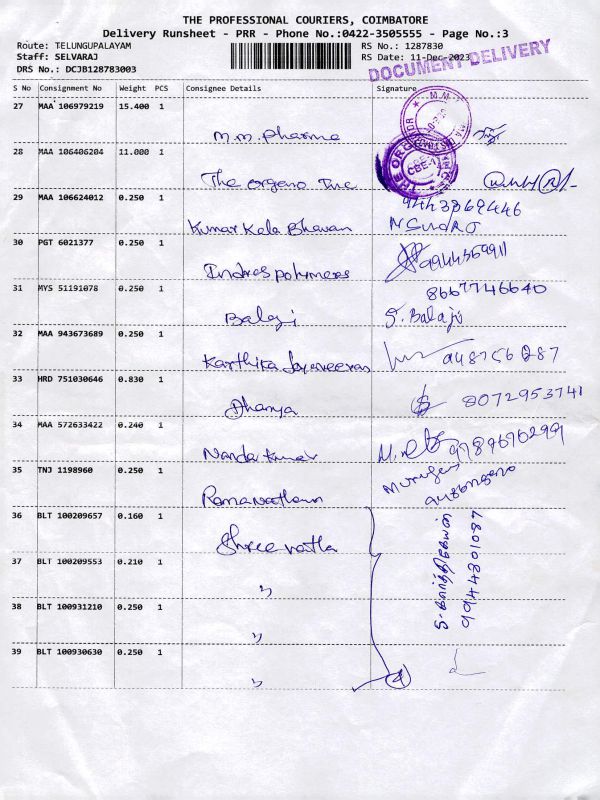 THE PROFESSIONAL COURIERS, COIMBATORE
Delivery Runsheet - PRR - Phone No.:0422-3505555 - Page No.:3
Route: TELUNGUPALAYAM RS No.: 1287830
Staff: SELVARAJ RS Date: 11-Dec-2023
DRS No.: DCJB128783003
DOCUMENT DELIVERY
S No Consignment No Weight PCS Consignee Details Signature
27 MAA 106979219 15.400 1
M.M. Pharma
28 MAA 106406204 11.000 1
CBE-1
The Organo Inc
29 MAA 106624012 0.250 1
9443869446
Kumar Kala Bhavan
30 PGT 6021377 0.250 1
Indras polymers 9944369911
31 MYS 51191078 0.250 1
8667746640
Balaji S. Balaji
32 MAA 943673689 0.250 1
Karthika
33 HRD 751030646 0.830 1
Dhanya 8072953741
34 MAA 572633422 0.240 1
Nanda Kumar
35 TNJ 1198960 0.250 1
Murugan
Ramanathan
36 BLT 100209657 0.160 1
Shree natla
37 BLT 100209553 0.210 1
"
38 BLT 100931210 0.250 1
"
39 BLT 100930630 0.250 1
" 4
S. கார்த்திகேயன்
9944801087